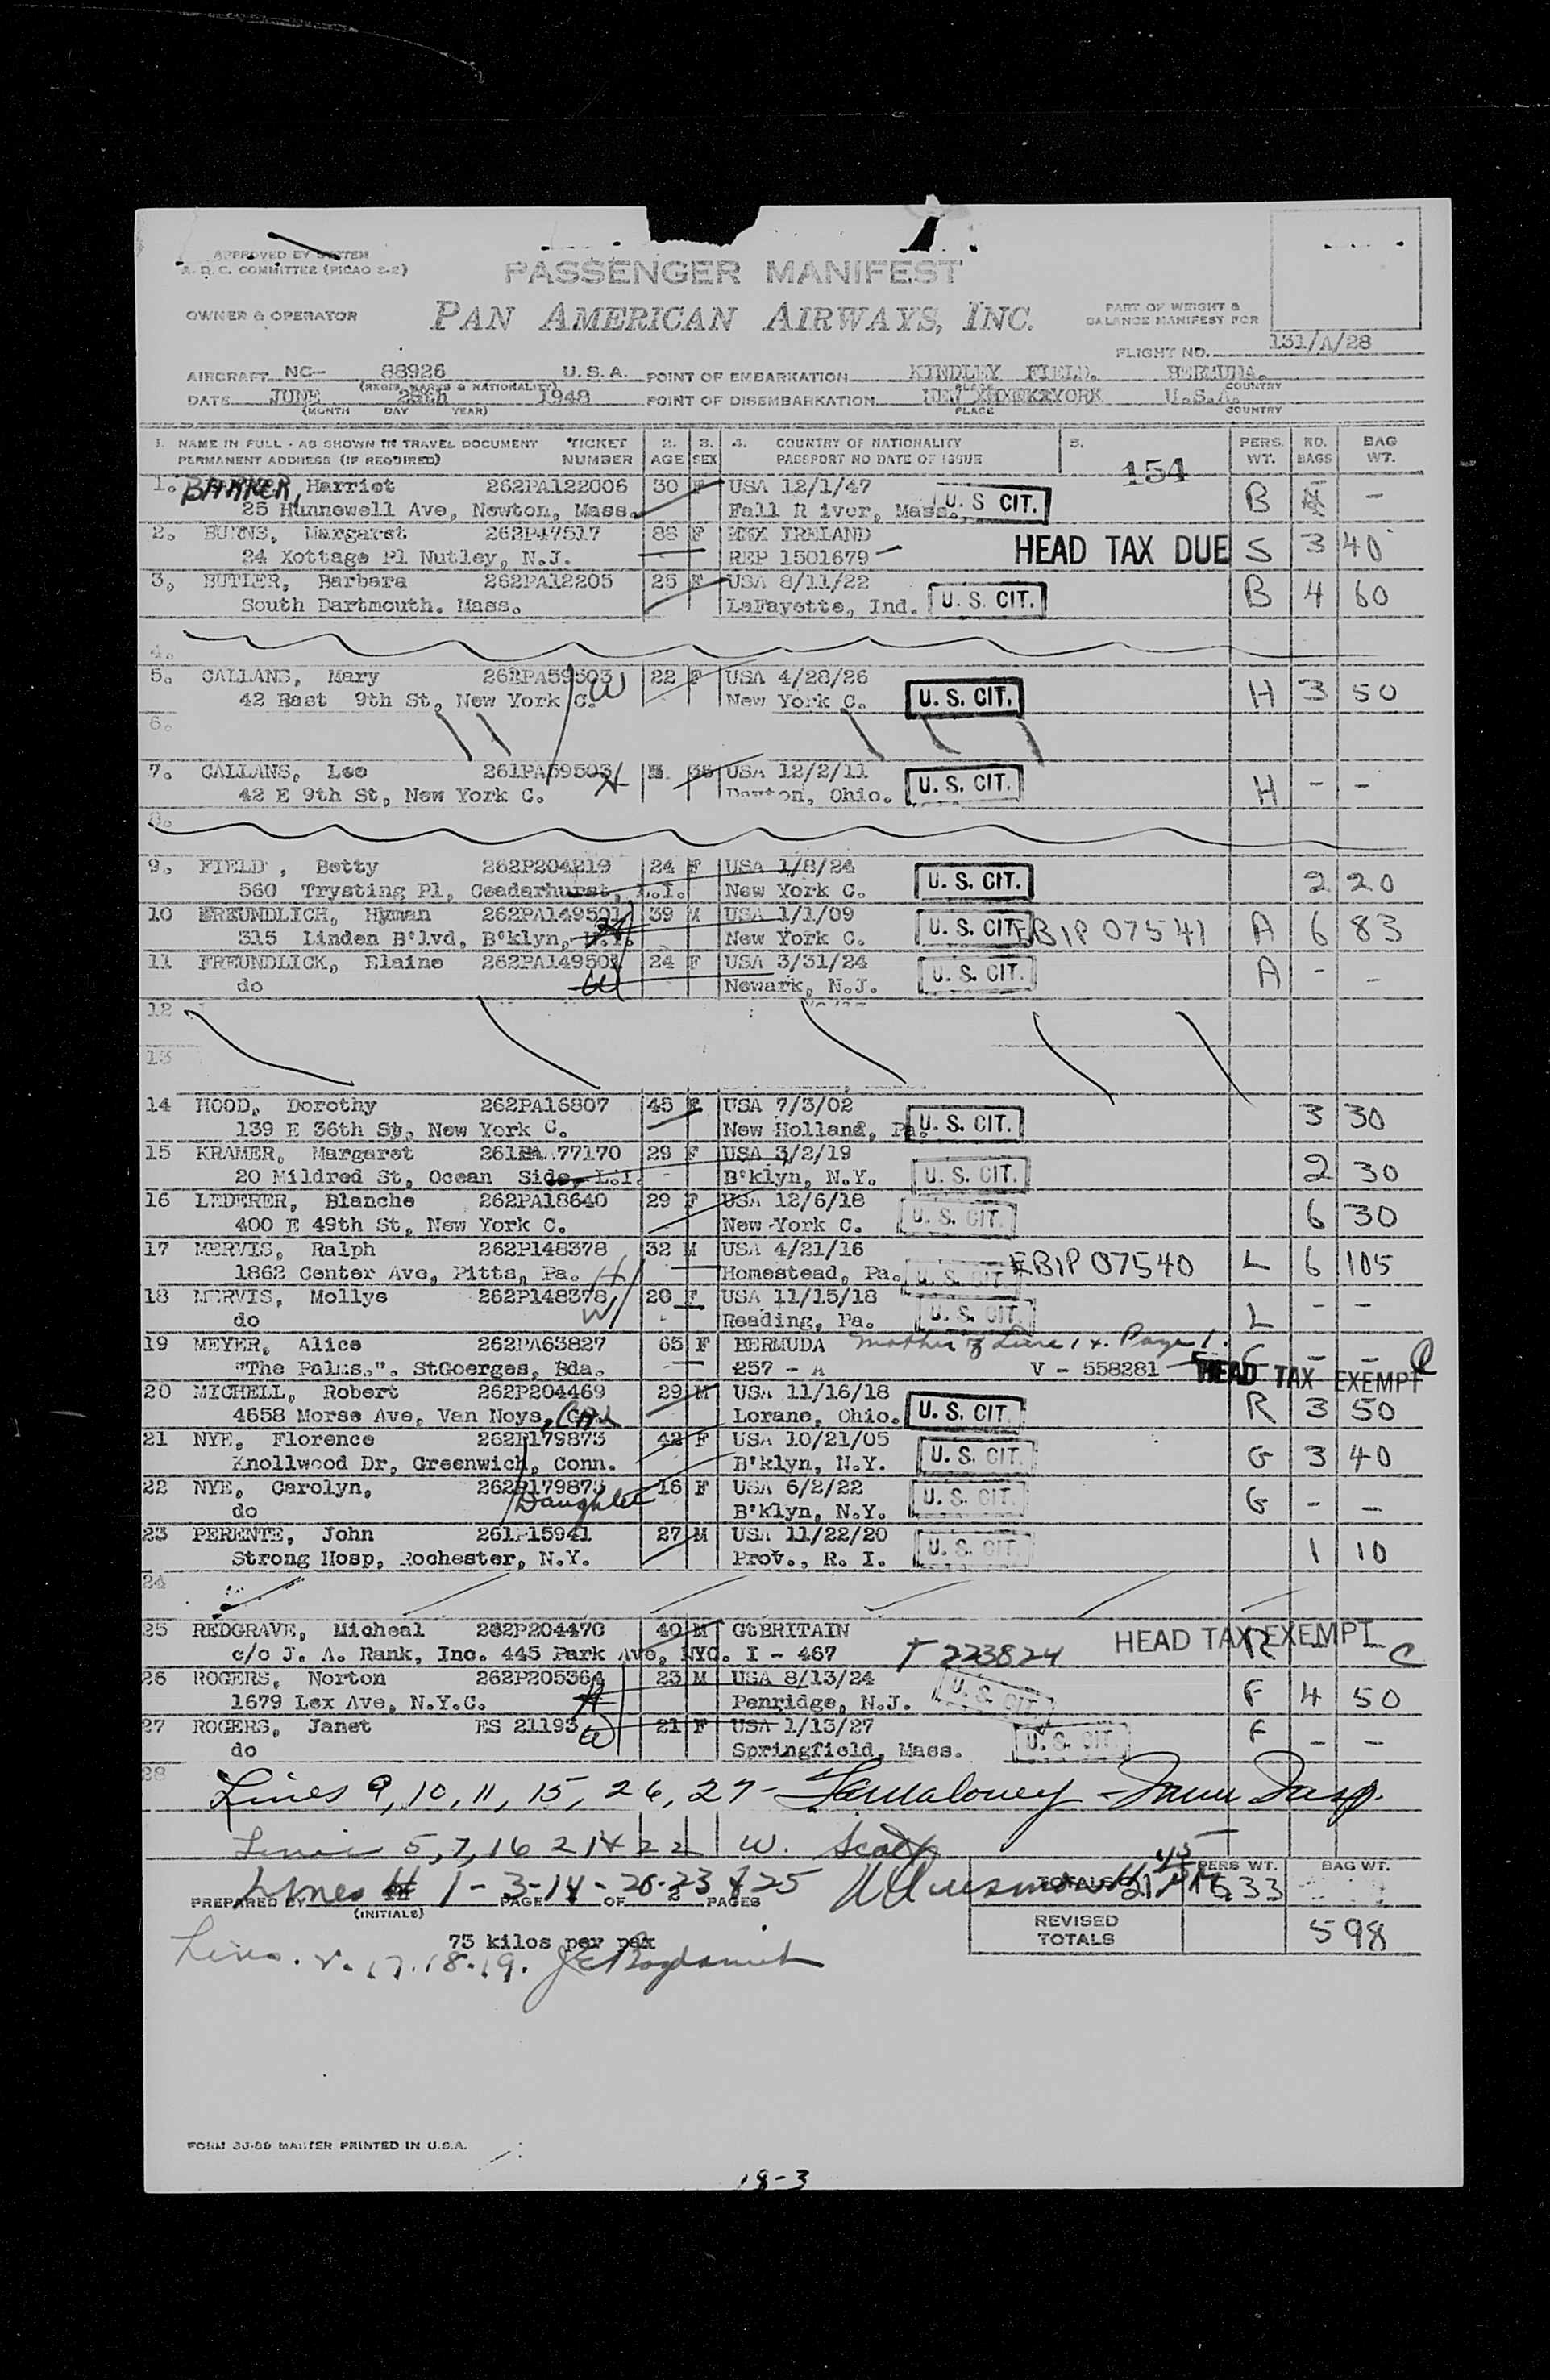 APPROVED BY SYSTEM
A. D. C. COMMITTEE (PICAO 2-2)
PASSENGER MANIFEST
OWNER & OPERATOR
PAN AMERICAN AIRWAYS, INC.
PART OF WEIGHT &
BALANCE MANIFEST FOR
FLIGHT NO. 131/A/28
AIRCRAFT NC- 88926 U.S.A. POINT OF EMBARKATION KINDLEY FIELD. BERMUDA.
(REGIS. MARKS & NATIONALITY) PLACE COUNTRY
DATE JUNE 28th 1948 POINT OF DISEMBARKATION NEW YORK U.S.A.
(MONTH DAY YEAR) PLACE COUNTRY
1. NAME IN FULL - AS SHOWN IN TRAVEL DOCUMENT TICKET 2. 3. 4. COUNTRY OF NATIONALITY 5. PERS. NO. BAG
PERMANENT ADDRESS (IF REQUIRED) NUMBER AGE SEX PASSPORT NO DATE OF ISSUE 154 WT. BAGS WT.
1. BARKER, Harriet 262PA122006 30 F USA 12/1/47 B -
25 Hunnewell Ave, Newton, Mass. Fall R iver, Mass. U.S CIT.
2. BURNS, Margaret 262P47517 88 F IRELAND
24 Xottage Pl Nutley, N.J. REP 1501679 HEAD TAX DUE S 3 40
3. BUTLER, Barbara 262PA12205 25 F USA 8/11/22 B 4 60
South Dartmouth. Mass. LaFayette, Ind. U.S. CIT.
4.
5. CALLANS, Mary 261PA59503 W 22 F USA 4/28/26 H 3 50
42 East 9th St, New York C. New York C. U.S. CIT.
6.
7. CALLANS, Leo 261PA59503 H M 36 USA 12/2/11
42 E 9th St, New York C. Dayton, Ohio. U.S. CIT. H - -
8.
9. FIELD , Betty 262P204219 24 F USA 1/8/24
560 Trysting Pl, Ceadarhurst, L.I. New York C. U.S. CIT. 2 20
10 FREUNDLICH, Hyman 262PA149501 39 M USA 1/1/09
315 Linden B'lvd, B'klyn, N.Y. New York C. U.S. CIT. EBIP 07541 A 6 83
11 FREUNDLICK, Elaine 262PA149501 24 F USA 3/31/24 A - -
do W Newark, N.J. U.S. CIT.
12
13
14 HOOD, Dorothy 262PA16807 45 F USA 7/3/02
139 E 36th St, New York C. New Holland, Pa. U.S. CIT. 3 30
15 KRAMER, Margaret 77170 29 F USA 3/2/19
20 Mildred St, Ocean Side, L.I. B'klyn, N.Y. U.S. CIT. 2 30
16 LEDERER, Blanche 262PA18640 29 F USA 12/6/18
400 E 49th St, New York C. New York C. U.S. CIT. 6 30
17 MERVIS, Ralph 262P148378 32 M USA 4/21/16
1862 Center Ave, Pitts, Pa. H Homestead, Pa. U.S. CIT. EBIP 07540 L 6 105
18 MERVIS, Mollye 262P148378 20 F USA 11/15/18
do W Reading, Pa. U.S. CIT. L - -
19 MEYER, Alice 262PA63827 65 F BERMUDA Mother of Line 14. Page 1.
"The Palms.". StGoerges, Bda. 257 - A V - 558281 HEAD TAX EXEMPT
20 MICHELL, Robert 262P204469 29 M USA 11/16/18
4658 Morse Ave, Van Noys, CAL Lorane, Ohio. U.S. CIT R 3 50
21 NYE, Florence 262P179873 42 F USA 10/21/05
Knollwood Dr, Greenwich, Conn. B'klyn, N.Y. U.S. CIT. G 3 40
22 NYE, Carolyn, 262P179873 16 F USA 6/2/22
do Daughter B'klyn, N.Y. U.S. CIT. G - -
23 PERENTE, John 261P15941 27 M USA 11/22/20
Strong Hosp, Rochester, N.Y. Prov., R. I. U.S. CIT. 1 10
24
25 REDGRAVE, Micheal 262P204470 40 M GtBRITAIN HEAD TAX EXEMPT
c/o J. A. Rank, Inc. 445 Park Ave, NYC. I - 467 T 223824 R C
26 ROGERS, Norton 262P205364 23 M USA 8/13/24
1679 Lex Ave, N.Y.C. H Penridge, N.J. U.S. CIT. F 4 50
27 ROGERS, Janet ES 21193 W 21 F USA 1/13/27 F - -
do Springfield, Mass. U.S. CIT.
28 Lines 9, 10, 11, 15, 26, 27 -
5, 7, 16 21 & 22 W. Scott
Lines 1 - 3 - 14 - 20 - 23 & 25
PREPARED BY PAGE OF 2 PAGES
(INITIALS)
TOTALS PERS WT. 1533 BAG WT.
REVISED
TOTALS 598
75 kilos per pax
17. 18. 19.
FORM 30-80 MASTER PRINTED IN U.S.A.
18-3